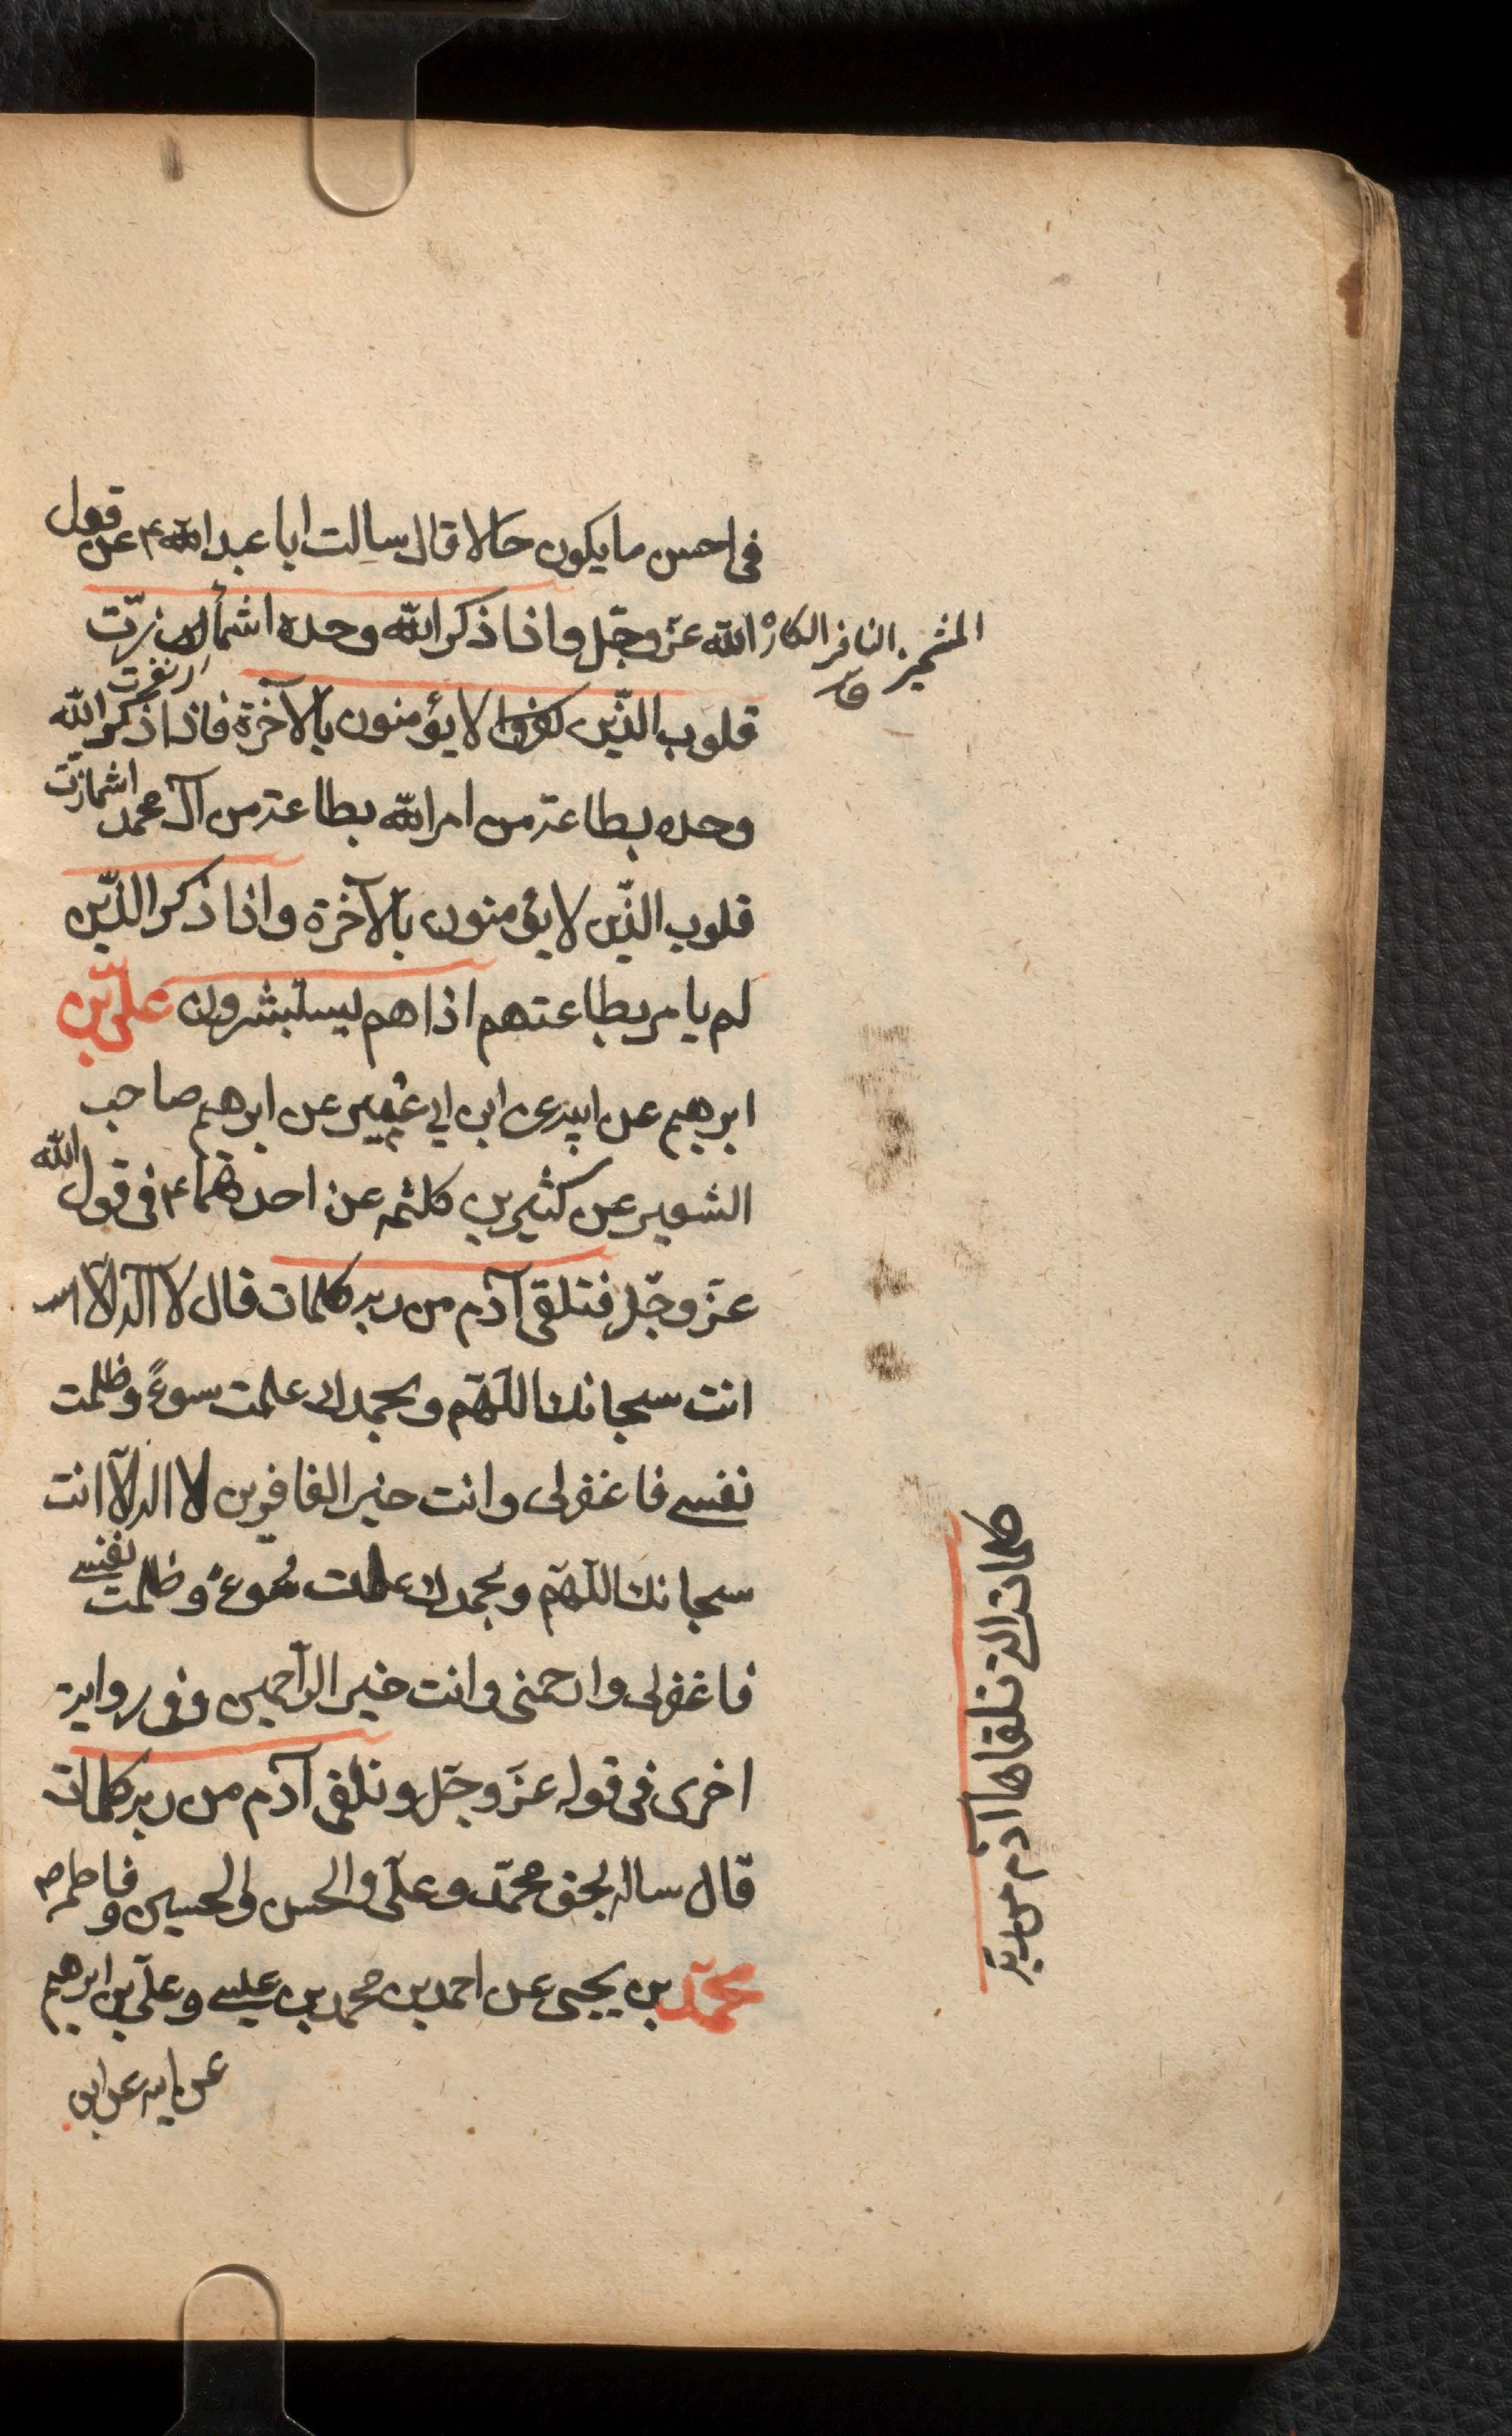 فى احسن ما يكون حالا قال سالت ابا عبد الله ع عن قول
الله عزّ وجلّ واذا ذكر الله وحده اشمأزّت
المشمئز النافر الكاره ق
اى نفرت
قلوب الذّين لا يؤمنون بالآخرة فاذا ذكر الله
وحده بطاعة من امر الله بطاعته من آل محمد اشمازّت
قلوب الذّين لا يؤمنون بالآخرة واذا ذكر الذّين
لم يامر بطاعتهم اذا هم يستبشرون علىّ بن
ابرهيم عن ابيه عن ابن ابى عمير عن ابرهيم صاحب
الشعير عن كثير بن كلثمه عن احدهما ع فى قول الله
عزّ وجلّ فتلقى آدم من ربه كلمات قال لا آله الّا
انت سبحانك اللّهمّ وبحمدك علمت سوءً وظلمت
نفسى فاغفر لى وانت خير الغافرين لا اله الّا انت
سبحانك اللّهمّ وبحمدك عملت سوءً وظلمت نفسى
فاغفر لى وارحمنى وانت خير الرّاحمين وفى رواية
اخرى فى قوله عزّ وجلّ وتلقى آدم من ربه كلمات
قال ساله بحق محمّد وعلىّ والحسن والحسين وفاطمه ص
محمّد بن يحيى عن احمد بن محمد بن عيسى وعلىّ بن ابرهيم
عن ابيه عن ابن
كلمات التى تلقاها آدم من ربّه